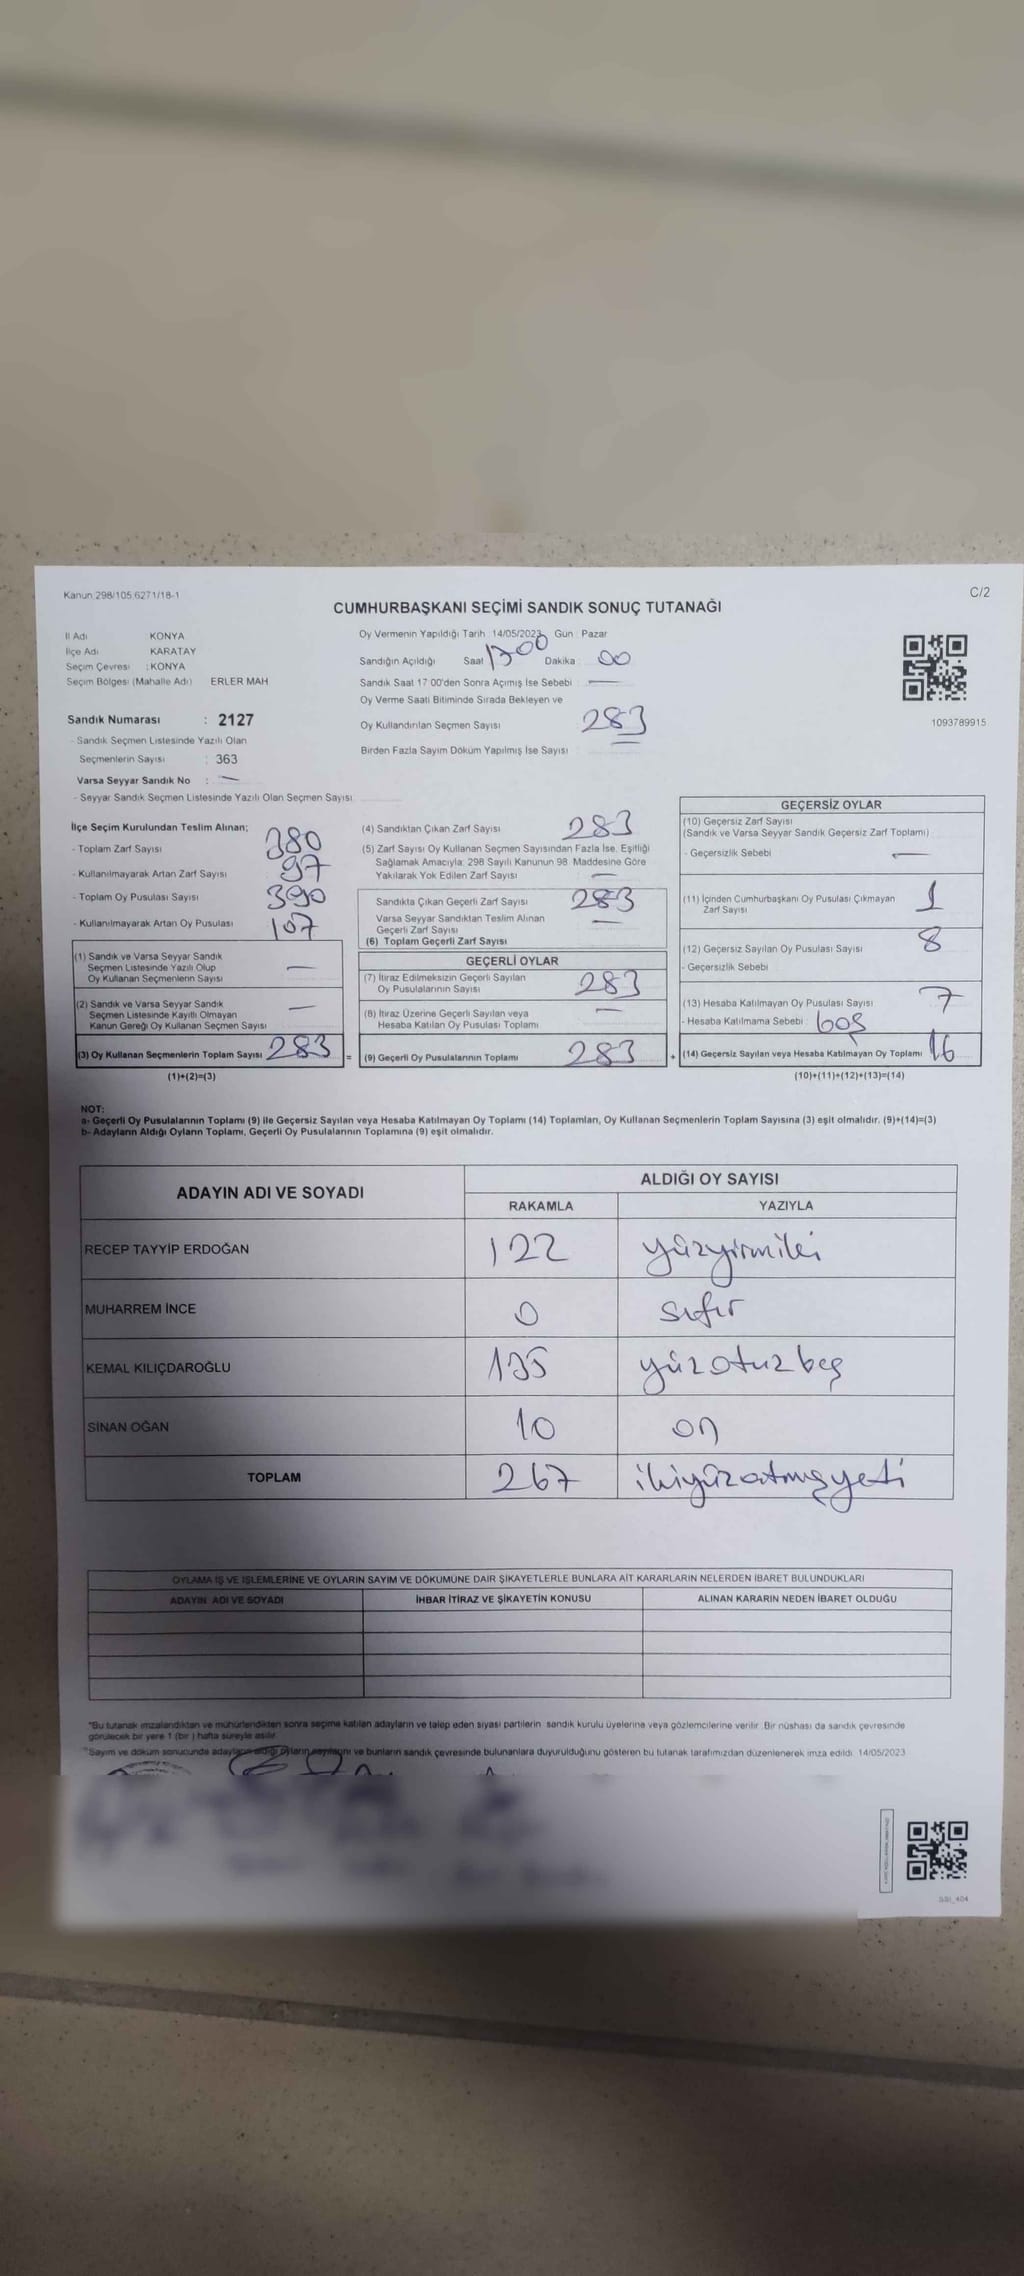 Kanun 298/105,6271/18-1
C/2
CUMHURBAŞKANI SEÇİMİ SANDIK SONUÇ TUTANAĞI
İl Adı KONYA
İlçe Adı KARATAY
Seçim Çevresi : KONYA
Seçim Bölgesi (Mahalle Adı) ERLER MAH
Sandık Numarası : 2127
- Sandık Seçmen Listesinde Yazılı Olan
Seçmenlerin Sayısı : 363
Varsa Seyyar Sandık No : —
- Seyyar Sandık Seçmen Listesinde Yazılı Olan Seçmen Sayısı
Oy Vermenin Yapıldığı Tarih 14/05/2023 Gün : Pazar
Sandığın Açıldığı Saat 1700 Dakika : 00
Sandık Saat 17 00'den Sonra Açımış İse Sebebi : —
Oy Verme Saati Bitiminde Sırada Bekleyen ve
Oy Kullandırılan Seçmen Sayısı 283
Birden Fazla Sayım Döküm Yapılmış İse Sayısı
1093789915
İlçe Seçim Kurulundan Teslim Alınan;
- Toplam Zarf Sayısı 380
- Kullanılmayarak Artan Zarf Sayısı 97
- Toplam Oy Pusulası Sayısı 390
- Kullanılmayarak Artan Oy Pusulası 107
(1) Sandık ve Varsa Seyyar Sandık
Seçmen Listesinde Yazılı Olup
Oy Kullanan Seçmenlerin Sayısı —
(2) Sandık ve Varsa Seyyar Sandık
Seçmen Listesinde Kayıtlı Olmayan
Kanun Gereği Oy Kullanan Seçmen Sayısı —
(3) Oy Kullanan Seçmenlerin Toplam Sayısı 283 =
(1)+(2)=(3)
(4) Sandıktan Çıkan Zarf Sayısı 283
(5) Zarf Sayısı Oy Kullanan Seçmen Sayısından Fazla İse, Eşitliği
Sağlamak Amacıyla, 298 Sayılı Kanunun 98. Maddesine Göre
Yakılarak Yok Edilen Zarf Sayısı —
Sandıkta Çıkan Geçerli Zarf Sayısı 283
Varsa Seyyar Sandıktan Teslim Alınan
Geçerli Zarf Sayısı —
(6) Toplam Geçerli Zarf Sayısı
GEÇERLİ OYLAR
(7) İtiraz Edilmeksizin Geçerli Sayılan
Oy Pusulalarının Sayısı 283
(8) İtiraz Üzerine Geçerli Sayılan veya
Hesaba Katılan Oy Pusulası Toplamı —
(9) Geçerli Oy Pusulalarının Toplamı 283 +
GEÇERSİZ OYLAR
(10) Geçersiz Zarf Sayısı
(Sandık ve Varsa Seyyar Sandık Geçersiz Zarf Toplamı)
- Geçersizlik Sebebi —
(11) İçinden Cumhurbaşkanı Oy Pusulası Çıkmayan
Zarf Sayısı 1
(12) Geçersiz Sayılan Oy Pusulası Sayısı 8
- Geçersizlik Sebebi
(13) Hesaba Katılmayan Oy Pusulası Sayısı 7
- Hesaba Katılmama Sebebi : boş
(14) Geçersiz Sayılan veya Hesaba Katılmayan Oy Toplamı 16
(10)+(11)+(12)+(13)=(14)
NOT:
a- Geçerli Oy Pusulalarının Toplamı (9) ile Geçersiz Sayılan veya Hesaba Katılmayan Oy Toplamı (14) Toplamları, Oy Kullanan Seçmenlerin Toplam Sayısına (3) eşit olmalıdır. (9)+(14)=(3)
b- Adayların Aldığı Oyların Toplamı, Geçerli Oy Pusulalarının Toplamına (9) eşit olmalıdır.
ADAYIN ADI VE SOYADI ALDIĞI OY SAYISI
RAKAMLA YAZIYLA
RECEP TAYYİP ERDOĞAN 122 yüzyirmiiki
MUHARREM İNCE 0 sıfır
KEMAL KILIÇDAROĞLU 135 yüzotuzbeş
SİNAN OĞAN 10 on
TOPLAM 267 ikiyüzatmışyedi
OYLAMA İŞ VE İŞLEMLERİNE VE OYLARIN SAYIM VE DÖKÜMÜNE DAİR ŞİKAYETLERLE BUNLARA AİT KARARLARIN NELERDEN İBARET BULUNDUKLARI
ADAYIN ADI VE SOYADI İHBAR İTİRAZ VE ŞİKAYETİN KONUSU ALINAN KARARIN NEDEN İBARET OLDUĞU
*Bu tutanak imzalandıktan ve mühürlendikten sonra seçime katılan adayların ve talep eden siyasi partilerin sandık kurulu üyelerine veya gözlemcilerine verilir. Bir nüshası da sandık çevresinde
görülecek bir yere 1 (bir ) hafta süreyle asılır.
*Sayım ve döküm sonucunda adayların aldığı oyların sayılarını ve bunların sandık çevresinde bulunanlara duyurulduğunu gösteren bu tutanak tarafımızdan düzenlenerek imza edildi. 14/05/2023
SSI_404